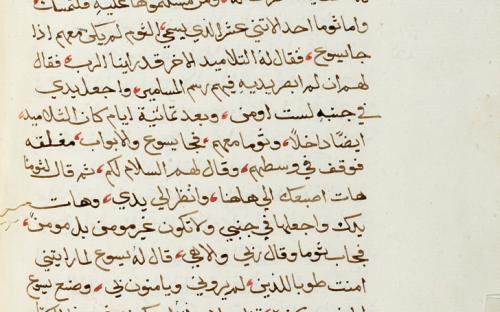 واما ثوما احد الاثني عشر الذي يسمي التوم لم يكن معهم اذا
جا يسوع، فقال له التلاميد الاخر قد راينا الرب، فقال
لهم ان لم ابصر يديه فيهم رسم المسامير، واجعل يدي
في جنبه لست اومن، وبعد ثمانية ايام كان التلاميد،
ايضًا داخلًا، وثوما معهم، فجا يسوع والابواب مغلقه
فوقف في وسطهم، وقال لهم السلام لكم، ثم قال لثوما
هات اصبعك الي هاهنا، وانظر الي يدي، وهات
يدك واجعلها في جنبي ولا تكون غير مومن بل مومن،
فجاب ثوما وقال ربي والاهي، قال له يسوع لما رايتني
امنت طوبا للذين لم يروني ويامنون بي، وصنع يسوع